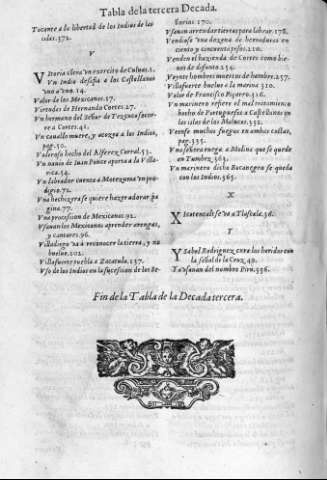 Tabla de la tercera Decada.
Tocante a la libertad de los Indios de las
cidas.372.
V
Vitoria tiene vn exercito de Culua.1.
Vn Indio desafia a los Castellanos
vno a vno.14.
Valor de los Mexicanos.17.
Virtudes de Hernando Cortes.27.
Vn hermano del Señor de Tezcuco socor-
re a Cortes.41.
Vn cauallo muere, y acoxea a los Indios,
pag.50.
Valeroso hecho del Alferez Corral.53.
Vn nauio de Iuan Ponce aporta a la Villa-
rica.54.
Vn labrador cuenta a Motezuma vn pro-
digio.72.
Vna hechizera se quiere hazer adorar pa
gina.77.
Vna procesion de Mexicanos.92.
Vsauan los Mexicanos aprender arengas,
y cantares.96.
Villadiego va a reconocer la tierra, y no
buelue.202.
Villafuerte puebla a Zacatula.137.
Vso de los Indios en la sucession de los Se-
ñorios.170.
Vsauan arrendar tierras para labrar.178.
Vendiase vna dozena de herraduras en
ciento y cincuenta pesos.210.
Venden el hazienda de Cortes como bie-
nes de difunto.234.
Veynte hombres muertos de hambre.257.
Villafuerte buelue a la marina.310.
Valor de Francisco Piçarro.326.
Vn marinero refiere el mal tratamiento
hecho de Portugueses a Castellanos en
las islas de los Malucos.332.
Veense muchos fuegos en ambas costas,
pag.335.
Vna señora ruega a Molina que se quede
en Tumbez.363.
Vn marinero dicho Bocanegra se queda
con los Indios.365.
X
Xicotencatl se va a Tlascala.38.
Y
Ysabel Rodriguez cura los heridos con
la señal de la Cruz.49.
Ya vsauan del nombre Piru.336.
Fin de la Tabla de la Decada tercera.